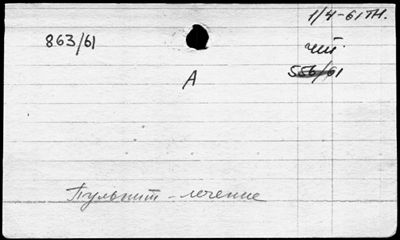 1/4-61 тн.
863/61
чит.
556/61
А
Пульпит - лечение